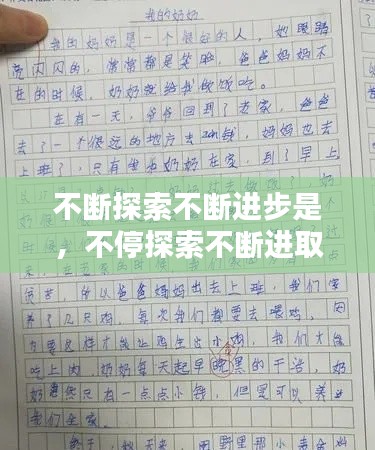 我的奶奶
我的奶奶是一个很好的人，她眼睛
亮闪闪的，常常都是笑脸，爸爸妈妈不
在的时候，奶奶就给我做饭吃。
在有一天，爷爷回到了老家，爸爸
去了一个很远的地方去zen钱，妈妈也去
上班了，只有我和奶奶在家，到了晚上
不断探索不断进步是
，不停探索不断进取
很苦，的以爸爸妈妈出去上班，我们家
养了几只鸡，每次我们都要去喂鸡，因
为要这样才能让鸡生出小鸡，我们才能
吃上肉，奶奶每天起早晚黑的干活，奶
奶虽然只有一点点小钱，但是可以养
我们全家。
秋天来，田野里那小